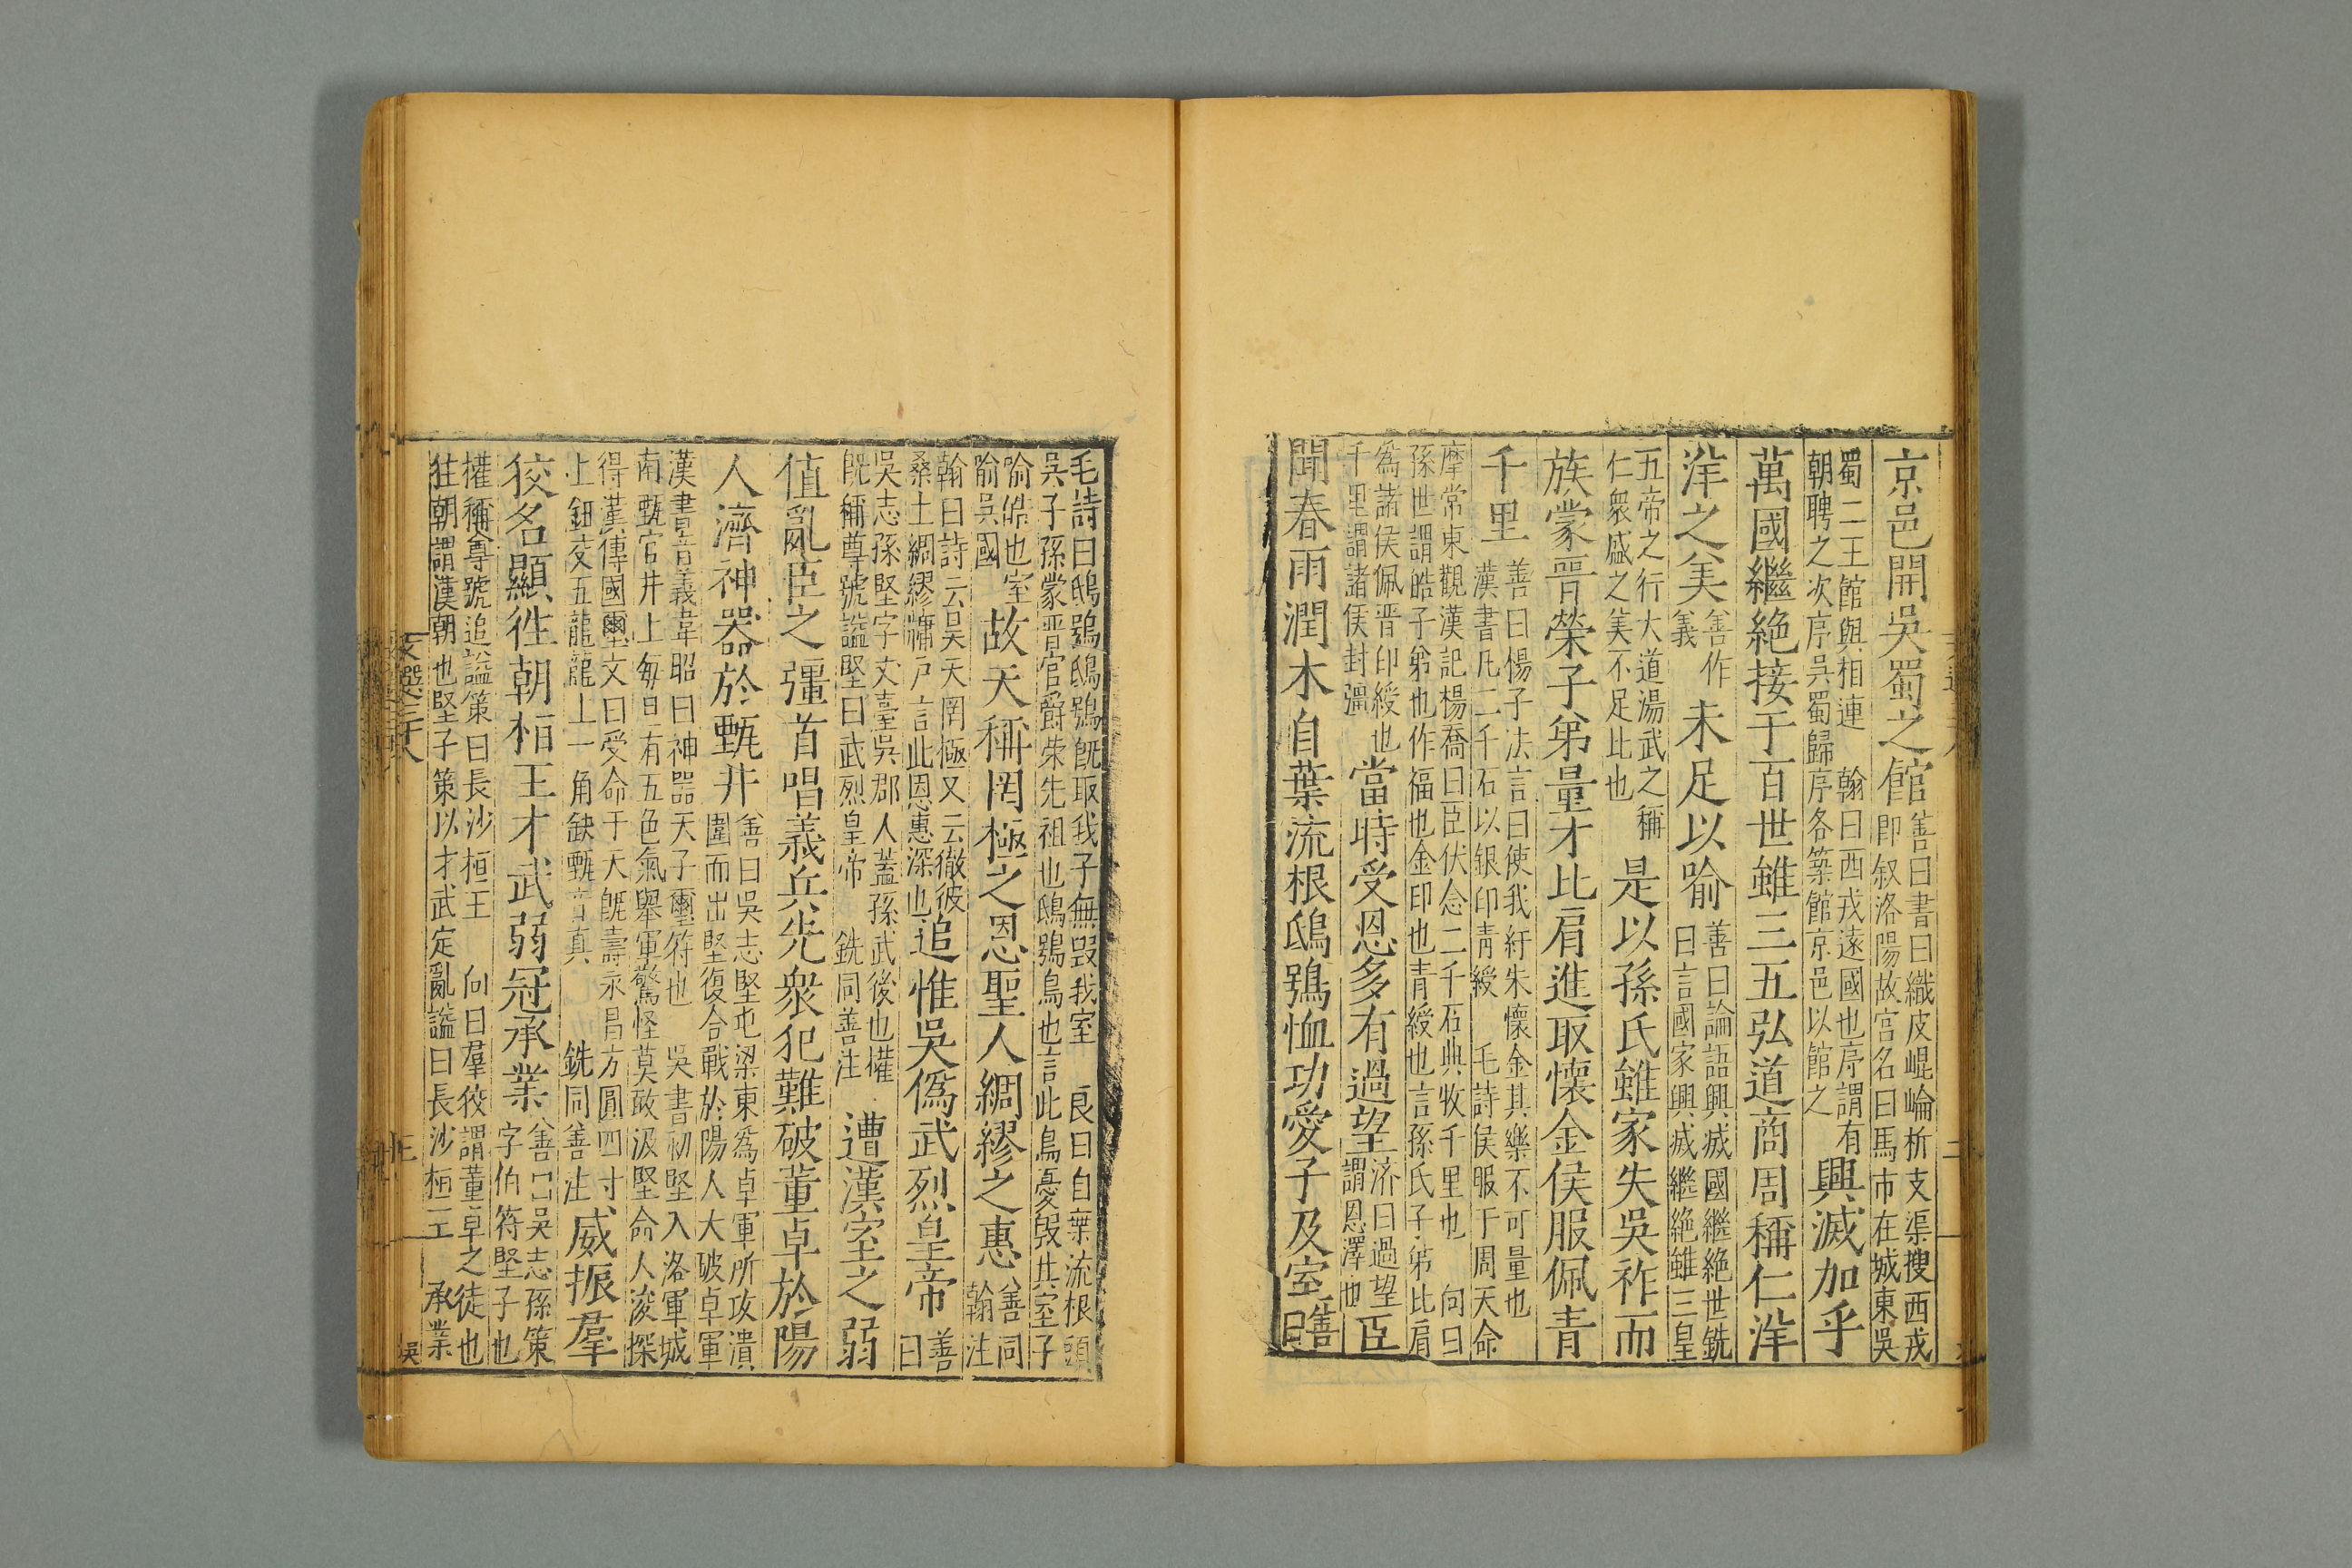 京邑開吳蜀之館善曰書曰織皮崐崘析支渠搜西戎
即叙洛陽故宮名曰馬市在城東吳
蜀二王館與相連　翰曰西戎遠國也序謂有
朝聘之次序吳蜀歸序各築館京邑以館之興滅加乎
萬國繼絶接于百世雖三五弘道商周稱仁洋
洋之美善作
義未足以喻善曰論語興滅國繼絶世銑
曰言國家興滅繼絶雖三皇
五帝之行大道湯武之稱
仁衆盛之美不足比也是以孫氏雖家失吳祚而
族蒙晉榮子弟量才比肩進取懷金侯服佩青
千里善曰楊子法言曰使我紆朱懷金其樂不可量也
漢書凡二千石以銀印青綬　毛詩侯服于周天命
摩常東觀漢記楊喬曰臣伏念二千石典牧千里也　向曰
孫世謂皓子弟也作福也金印也青綬也言孫氏子弟比肩
爲諸侯佩晋印綬也
千里謂諸侯封彊當時受恩多有過望济曰過望
謂恩澤也臣
聞春雨潤木自葉流根鴟鴞恤功愛子及室善
曰
毛詩曰鴟鴞鴟鴞旣取我子無毀我室　良曰自葉流根頭
吳子孫蒙晋官爵榮先祖也鴟鴞鳥也言此鳥憂毀其室子
喻皓也室
喻吳國故天稱罔極之恩聖人綢繆之惠善同
翰注
翰曰詩云吳天罔極又云徹彼
桑土綢繆牖戶言此恩惠深也追惟吳僞武烈皇帝善
曰
吳志孫堅字文臺吳郡人蓋孫武後也權
旣稱尊號謚堅曰武烈皇帝　銑同善注遭漢室之弱
值亂臣之彊首唱義兵先衆犯難破董卓於陽
人濟神器於甄井善曰吳志堅屯梁東爲卓軍所攻潰
圍而出堅復合戰於陽人大破卓軍
漢書音義韋昭曰神器天子璽符也　吳書初堅入洛軍城
南甄官井上每旦有五色氣舉軍驚怪莫敢汲堅命人浚探
得漢傳國璽文曰受命于天旣壽永昌方圓四寸
上鈕交五龍龍上一角缺甄音真　銑同善注威振羣
狡名顯徃朝桓王才武弱冠承業善曰吳志孫策
字伯符堅子也
權稱尊號追謚策曰長沙桓王　向曰羣狡謂董卓之徒也
徃朝謂漢朝也堅子策以才武定亂謚曰長沙桓王　承業
文選三十八
三
吳